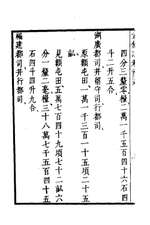 四分三釐零糧一萬一千五百四十六石四
斗二升五合
湖廣都司并留守司行都司
原額屯田一萬一千三百一十五項二十五
畝
見額屯田五萬七百四十九項七十二畝六
分一釐二毫糧三十八萬七千五百四十五
石四斗四升九合
福建都司并行都司